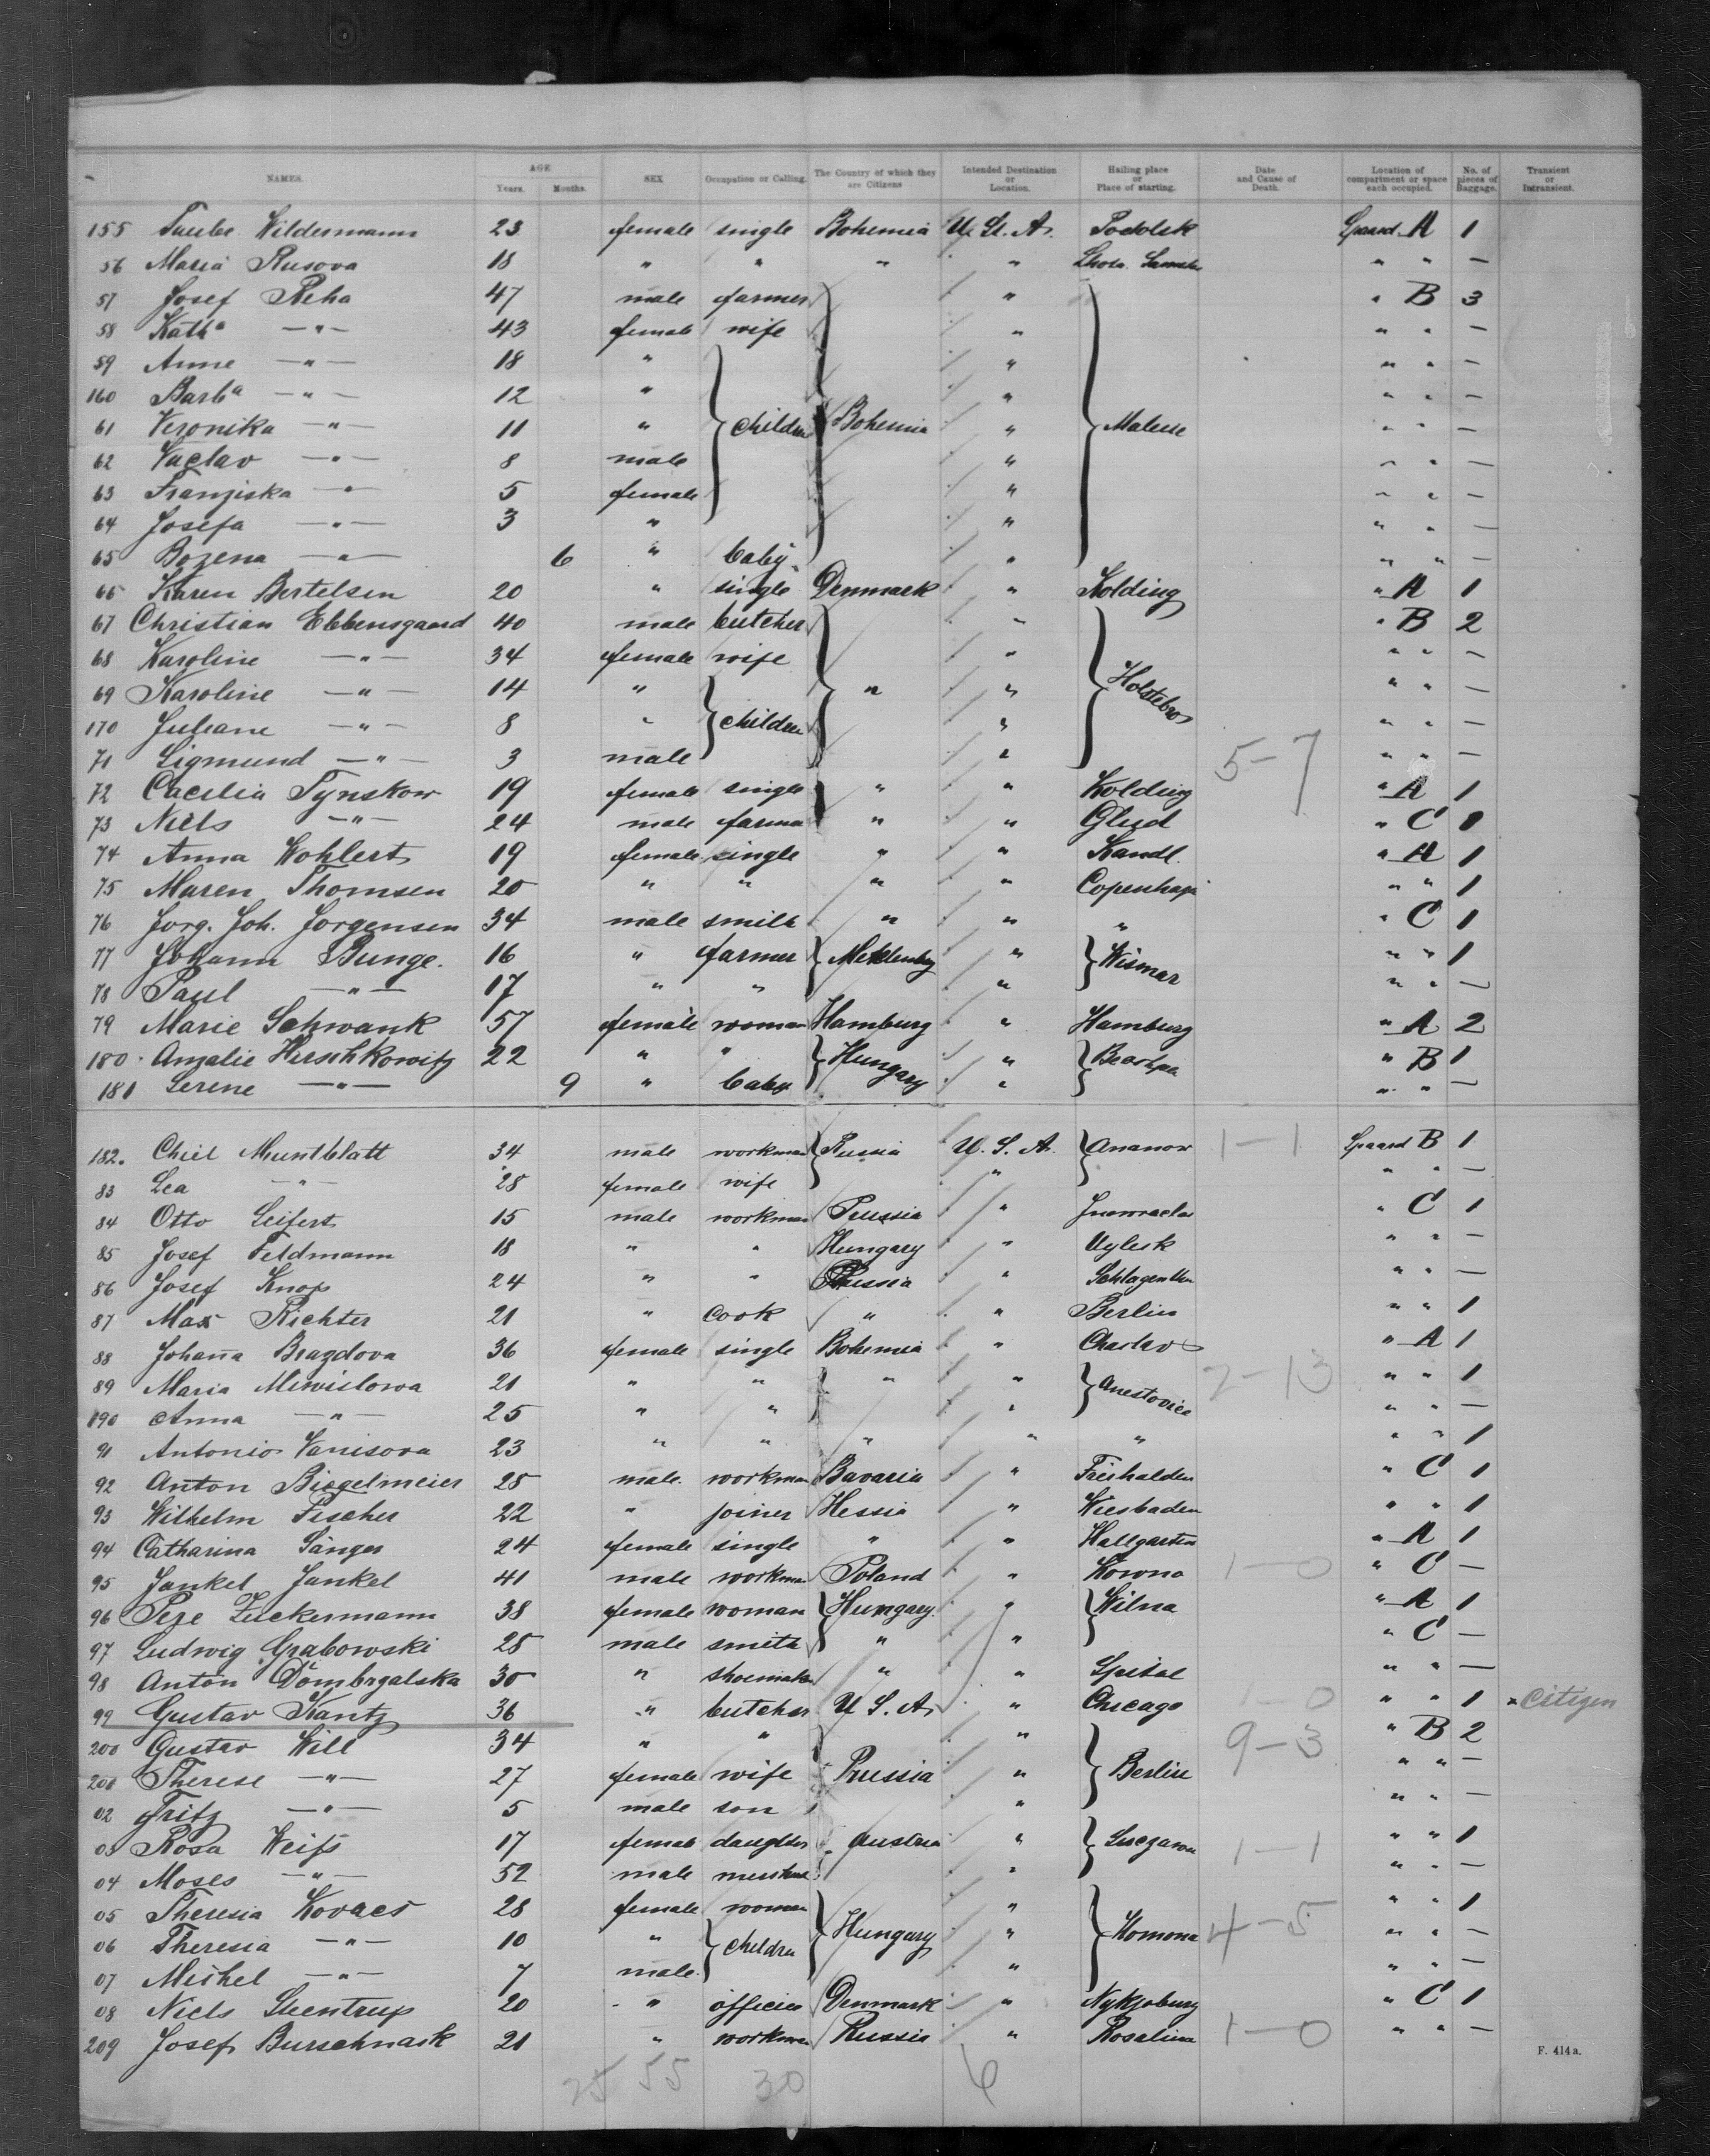 NAMES. AGE Years. Months. SEX Occupation or Calling. The Country of which they are Citizens Intended Destination or Location. Hailing place or Place of starting. Date and Cause of Death. Location of compartment or space each occupied. No. of pieces of Baggage. Transient or Intransient.
155 Taube Wildermann 23 female single Bohemia U. St. A. Podolsk A 1
56 Maria Rusova 18 " " " " " " —
57 Josef Reha 47 male farmer " " B 3
58 Kath a —"— 43 female wife " " " —
59 Anne —"— 18 " " " " —
160 Barb a —"— 12 " " " " —
61 Veronika —"— 11 " children Bohemia " " " —
62 Vaclav —"— 8 male " " " —
63 Franziska —"— 5 female " " " —
64 Josefa —"— 3 " " " " —
65 Bozena —"— 6 " baby " " " —
66 Karen Bertelsen 20 " single Denmark " Kolding " A 1
67 Christian Ebbensgaard 40 male butcher " " B 2
68 Karoline —"— 34 female wife " " " —
69 Karoline —"— 14 " " " Holstebro " " —
170 Juliane —"— 8 " children " " " —
71 Sigmund —"— 3 male " 5-7 " " —
72 Caecilia Tynskow 19 female single " " Kolding " A 1
73 Niels —"— 24 male farmer " " Glud " C
74 Anna Wohlert 19 female single " " Kandl. " A 1
75 Maren Thomsen 20 " " " " Copenhagen " " 1
76 Jorg. Joh. Jorgensen 34 male smith " " " " C 1
77 Johann Bunge. 16 " farmer Meklenburg " Wismar " " 1
78 Paul —"— 17 " " " " " —
79 Marie Schwank 57 female woman Hamburg " Hamburg " A 2
180 Amalie Herschkowitz 22 " " Hungary " " B 1
181 Serene —"— 9 " baby " " " —
182. Chiel Muntblatt 34 male workman Russia U. S. A. Ananow 1-1 B 1
83 Lea —"— 28 female wife " " " —
84 Otto Seifert 15 male workman Prussia " " C 1
85 Josef Feldmann 18 " " Hungary " " " —
86 Josef Knop 24 " " Prussia " " " —
87 Max Richter 21 " cook " " Berlin " " 1
88 Johana Brazdova 36 female single Bohemia " Chaslav " A 1
89 Maria Miwislowa 21 " " " " Anestovice 2-13 " " 1
190 Anna —"— 25 " " " " " —
91 Antonia Vanisova 23 " " " " " " " 1
92 Anton Biegelmeier 28 male workman Bavaria " Freihalden " C 1
93 Wilhelm Fischer 22 " joiner Hessia " Wiesbaden " " 1
94 Catharina Sänger 24 female single " " Hallgarten " A 1
95 Jankel Jankel 41 male workman Poland " Kowno 1-0 " C —
96 Peze Zuckermann 38 female woman Hungary " Wilna " A 1
97 Ludwig Grabowski 28 male smith " " " C —
98 Anton Dombrgalska 30 " shoemaker " " Spital " " —
99 Gustav Kantz 36 " butcher U S. A. " Chicago 1-0 " " 1 citizen
200 Gustav Will 34 " " " 9-3 " B 2
201 Therese —"— 27 female wife Prussia " Berlin " " —
02 Fritz —"— 5 male son " " " —
03 Rosa Weifs 17 female daughter Austria " 1-1 " " 1
04 Moses —"— 52 male " " " —
05 Theresia Kovacs 28 female woman " " " 1
06 Theresia —"— 10 " children Hungary " Homona 4-5 " " —
07 Mishel —"— 7 male " " " —
08 Niels Steentrup 20 " officer Denmark " Nykjoburg " C 1
209 Josef Burschnack 21 " workman Russia " Rosalina 1-0 " " —
F. 414a.
25 55 30 6